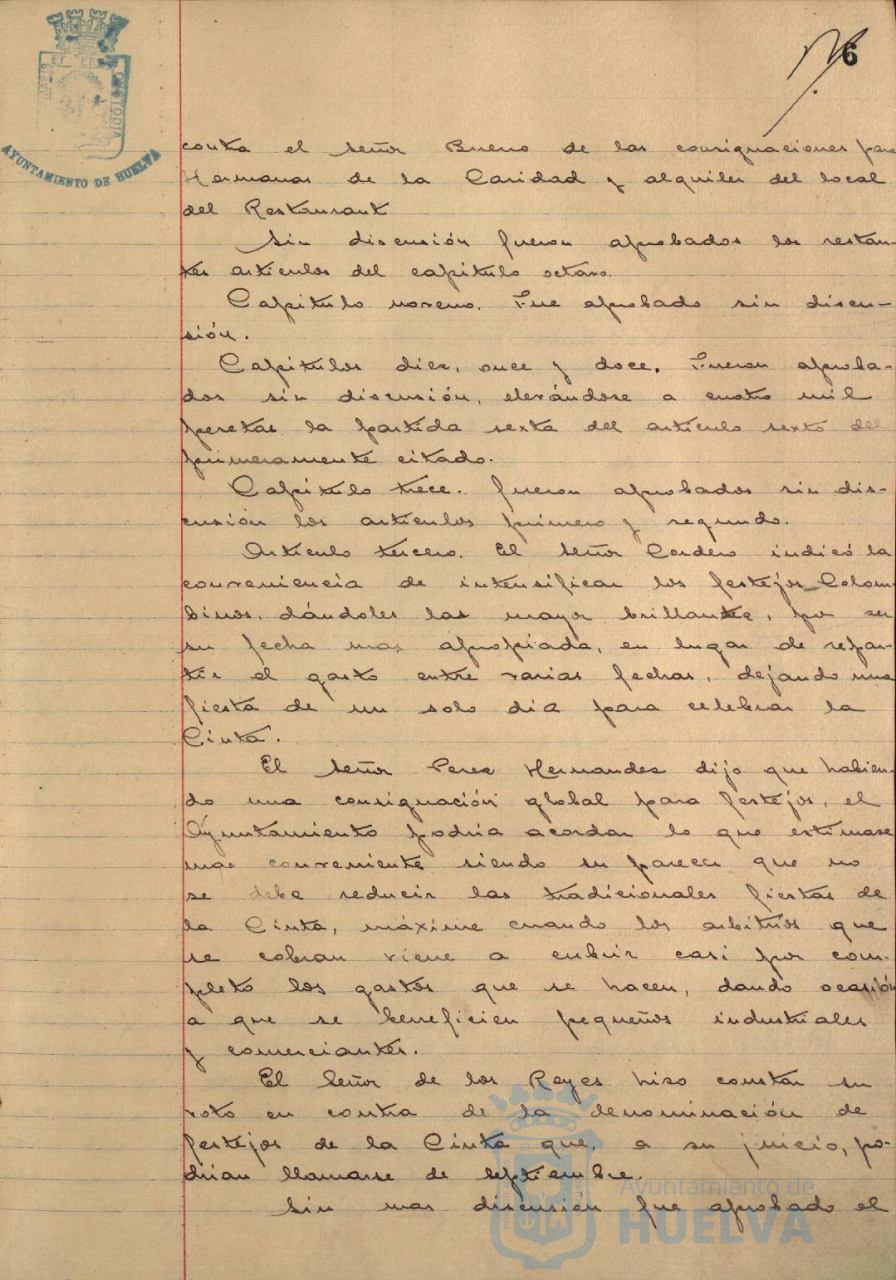 6
PORTUS MARIS ET TERRÆ CUSTODIA
AYUNTAMIENTO DE HUELVA
contra el Señor Bueno de las consignaciones para
Hermanas de la Caridad y alquiler del local
del Restaurant
Sin discusión fueron aprobados los restan-
tes artículos del capítulo octavo.
Capitulo noveno. Fue aprobado sin discu-
sión.
Capitulos diez, once y doce. Fueron aproba-
dos sin discusión, elevándose a cuatro mil
pesetas la partida sexta del artículo sexto del
primeramente citado.
Capitulo trece. Fueron aprobados sin dis-
cusión los artículos primero y segundo.
Artículo tercero. El Señor Cordero indicó la
conveniencia de intensificar los festejos Colom-
binos, dándoles las mayor brillante, por ser
su fecha mas apropiada, en lugar de repar-
tir el gasto entre varias fechas, dejando una
fiesta de un solo día para celebrar la
Cinta.
El Señor Perez Hernandez dijo que habien-
do una consignación global para festejos, el
Ayuntamiento podría acordar lo que estimase
mas conveniente siendo su parecer que no
se debe reducir las tradicionales fiestas de
la Cinta, máxime cuando los arbitrios que
se cobran viene a cubrir casi por com-
pleto los gastos que se hacen, dando ocasión
a que se beneficien pequeños industriales
y comerciantes.
El Señor de los Reyes hizo constar su
voto en contra de la denominación de
festejos de la Cinta que, a su juicio, po-
drían llamarse de septiembre.
Sin mas discusión fue aprobado el
Ayuntamiento de
HUELVA